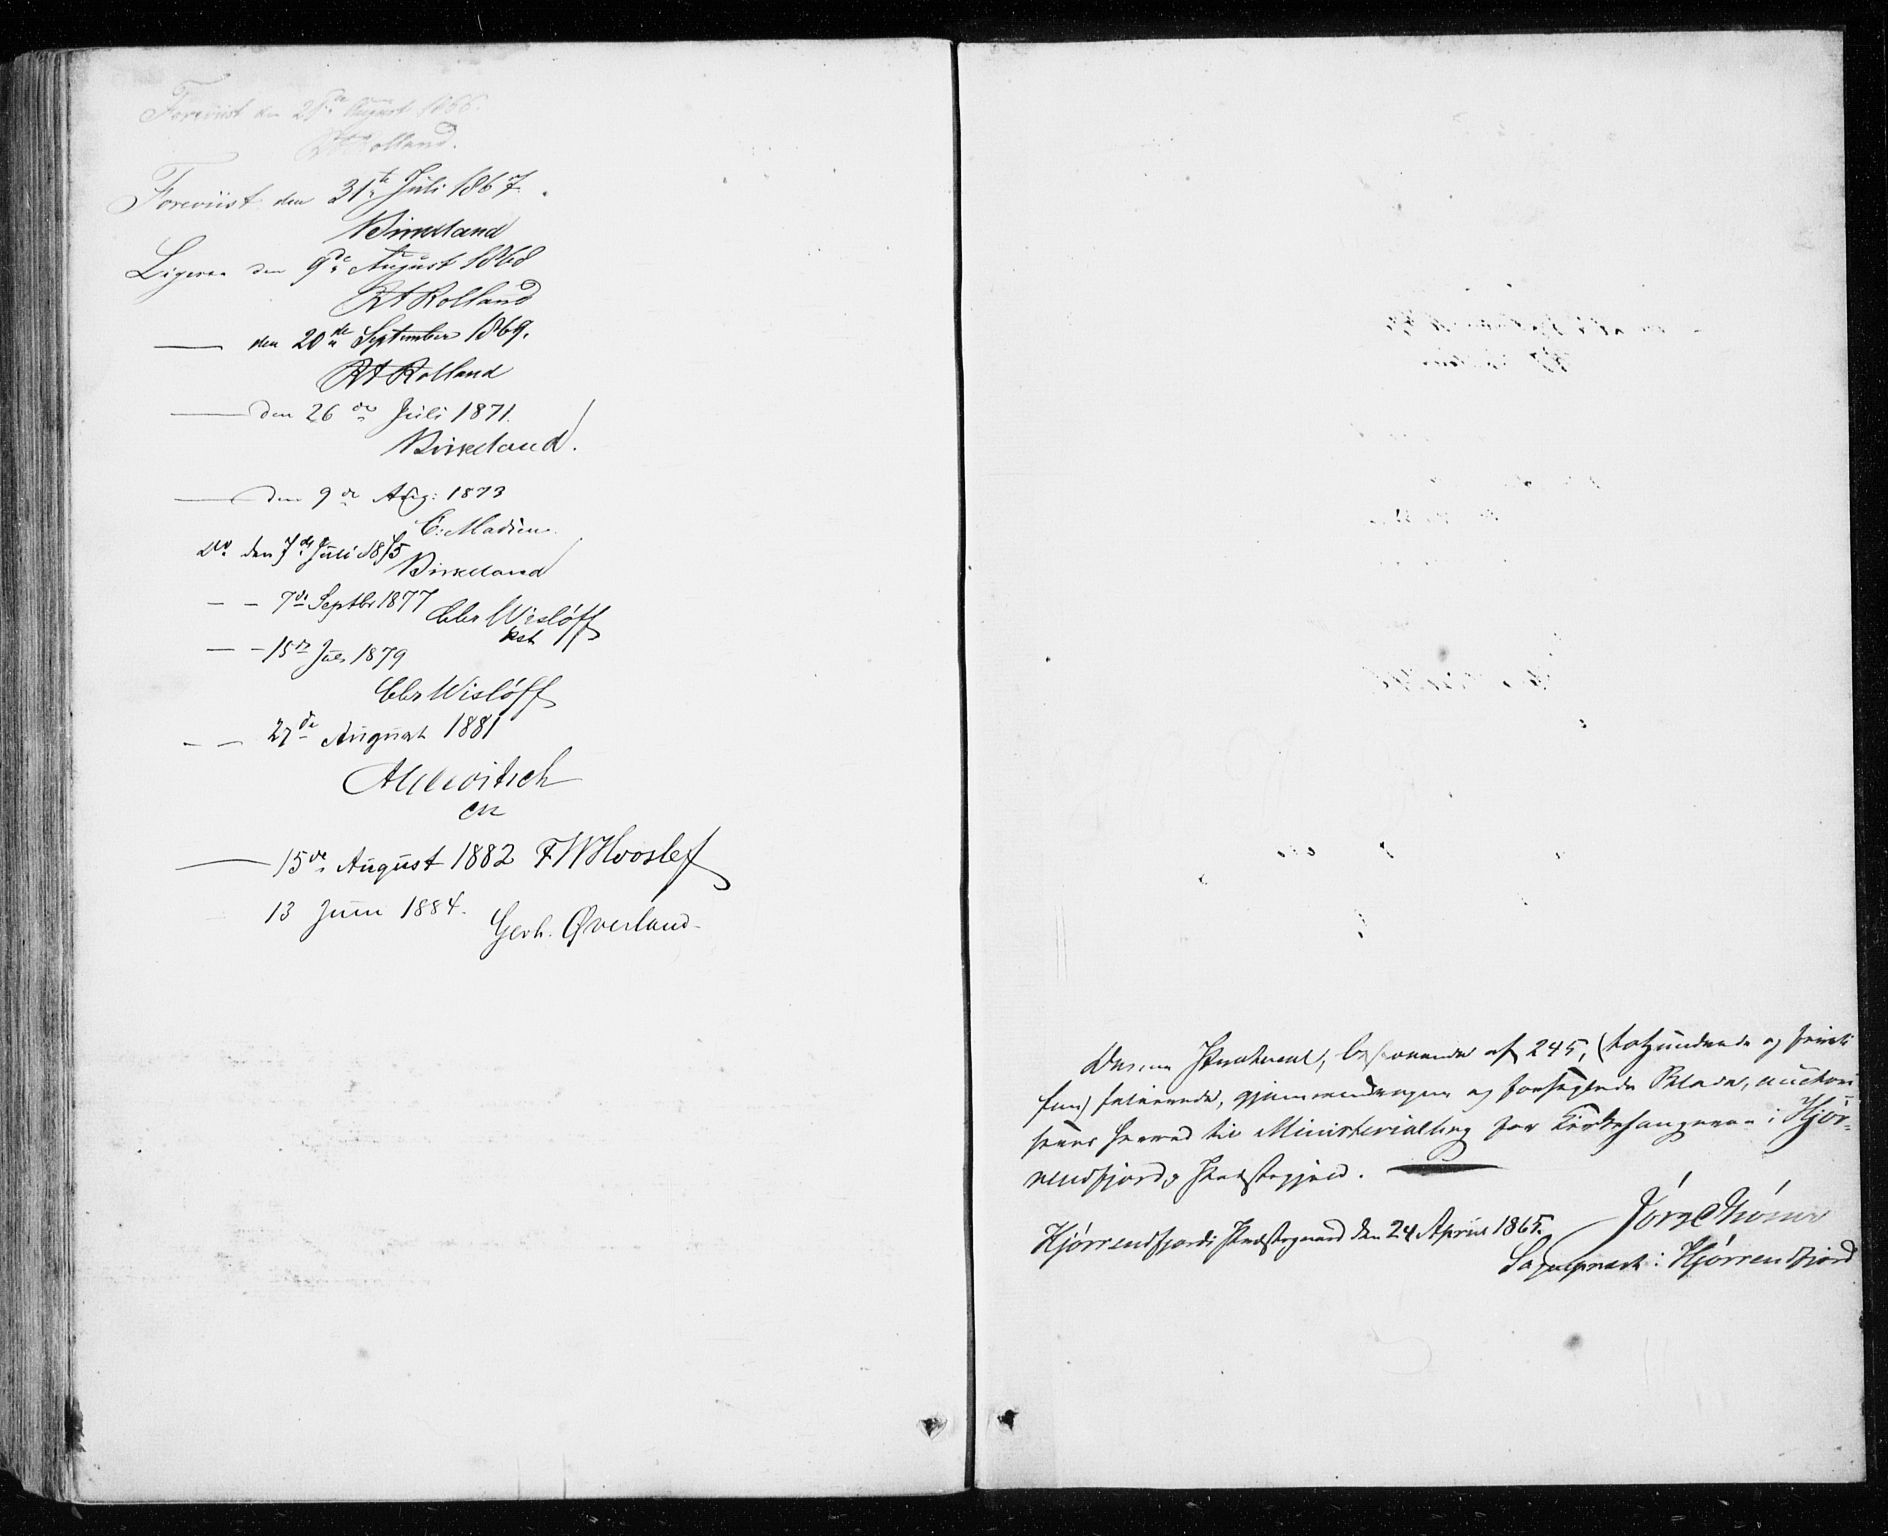 Foreviist den 28de August 1866.
Rolland.
Foreviist den 31te Juli 1867.
Birkeland
Ligesaa den 9de August 1868
Rolland
— den 20de September 1869.
Rolland
— den 26de Juli 1871.
Birkeland.
— den 9de Aug: 1873
C: Madsen
Do den 7de Juli 1875
Birkeland
— — 7de Septbr 1877 Chr Wisløff
kst
— — 15de Juli 1879
Chr Wisløff
— — 27de August 1881
— 15de August 1882 F W Hvoslef
13 Juni 1884.
Gerh. Øverland
Denne Protocol, bestaaende af 245, (tohundrede og firti
fem) folierede, gjennemdragne og forseglede Blade, auctori
seres herved til Ministerialbog for Kirkesangeren i Hjør-
rendfjords Præstegjæld.
Hjørrendfjords Præstegaard den 24 April 1865.
Sognepræst i Hjørrendfjord